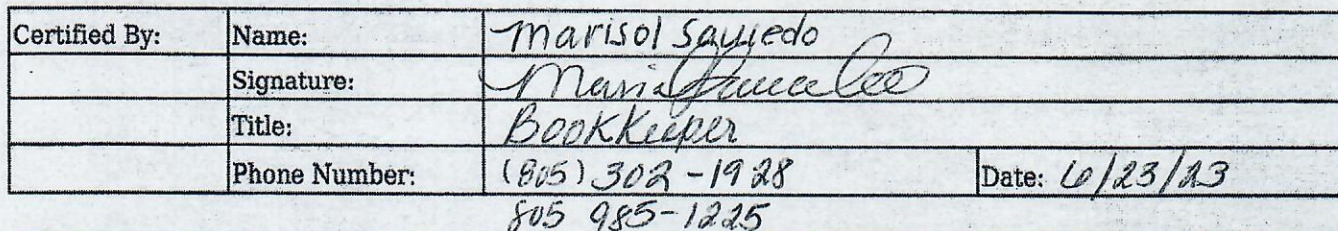 Certified By: Name: Marisol Saucedo
Signature:
Title: Bookkeeper
Phone Number: (805) 302-1928 Date: 6/23/23
805 985-1225